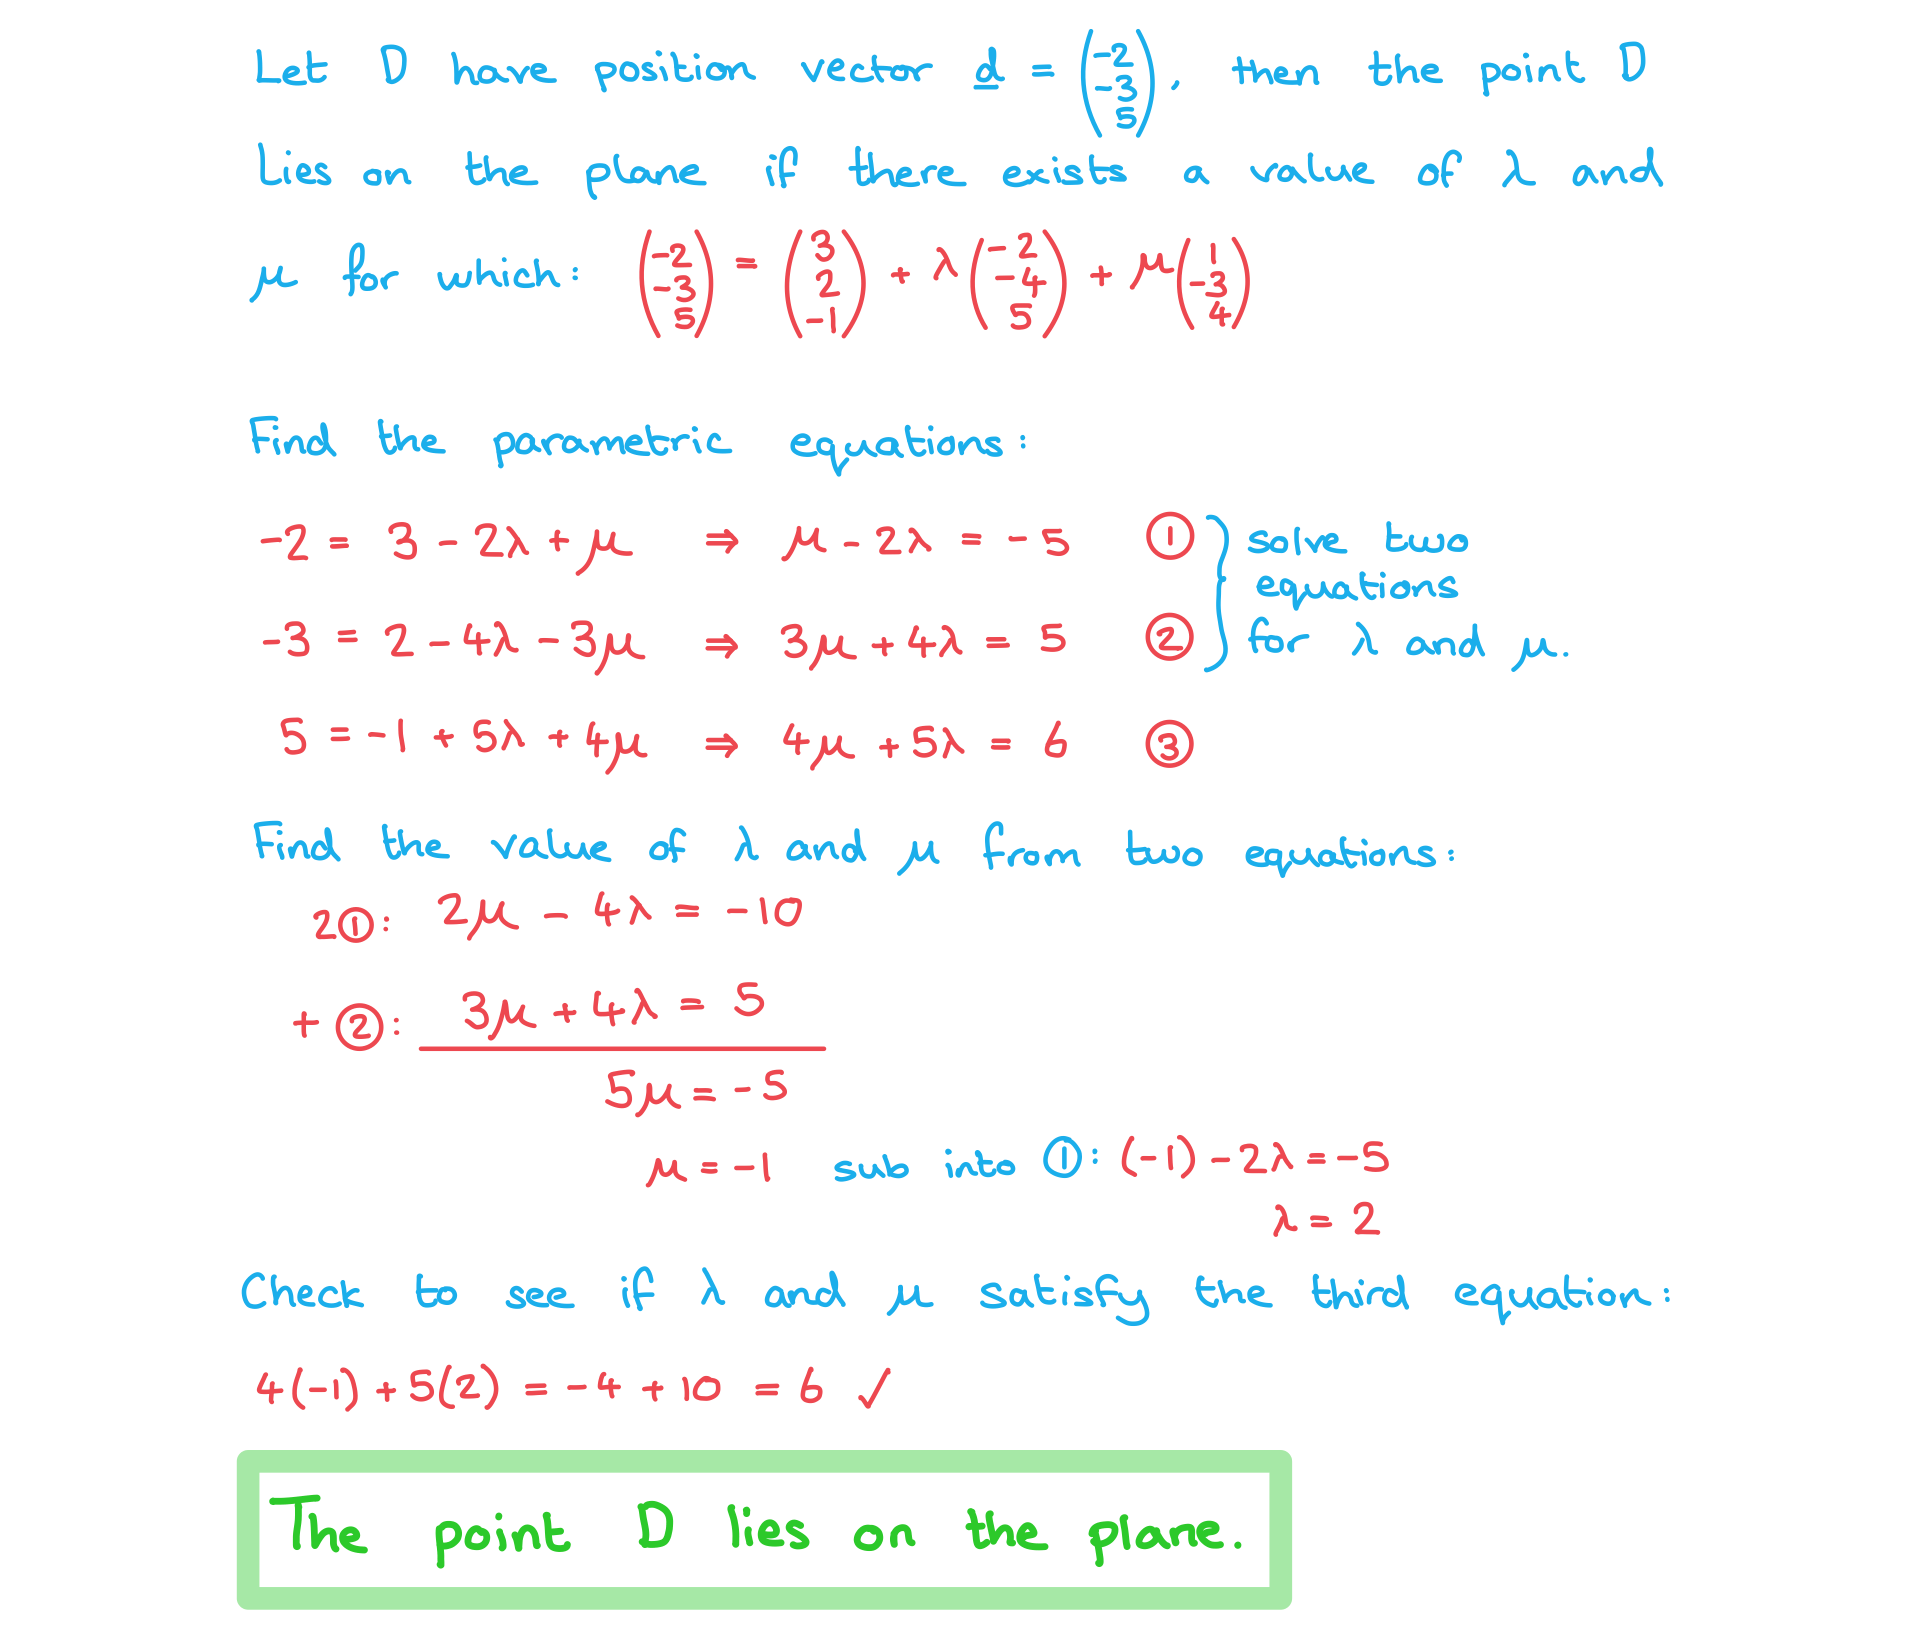 Let D have position vector d = (-2 -3 5), then the point D
Lies on the plane if there exists a value of λ and
μ for which: (-2 -3 5) = (3 2 -1) + λ(-2 -4 5) + μ(1 -3 4)
Find the parametric equations:
-2 = 3 - 2λ + μ ⇒ μ - 2λ = -5 ① solve two
equations
-3 = 2 - 4λ - 3μ ⇒ 3μ + 4λ = 5 ② for λ and μ.
5 = -1 + 5λ + 4μ ⇒ 4μ + 5λ = 6 ③
Find the value of λ and μ from two equations:
2①: 2μ - 4λ = -10
+ ②: 3μ + 4λ = 5
5μ = -5
μ = -1 sub into ①: (-1) - 2λ = -5
λ = 2
Check to see if λ and μ satisfy the third equation:
4(-1) + 5(2) = -4 + 10 = 6 ✓
The point D lies on the plane.